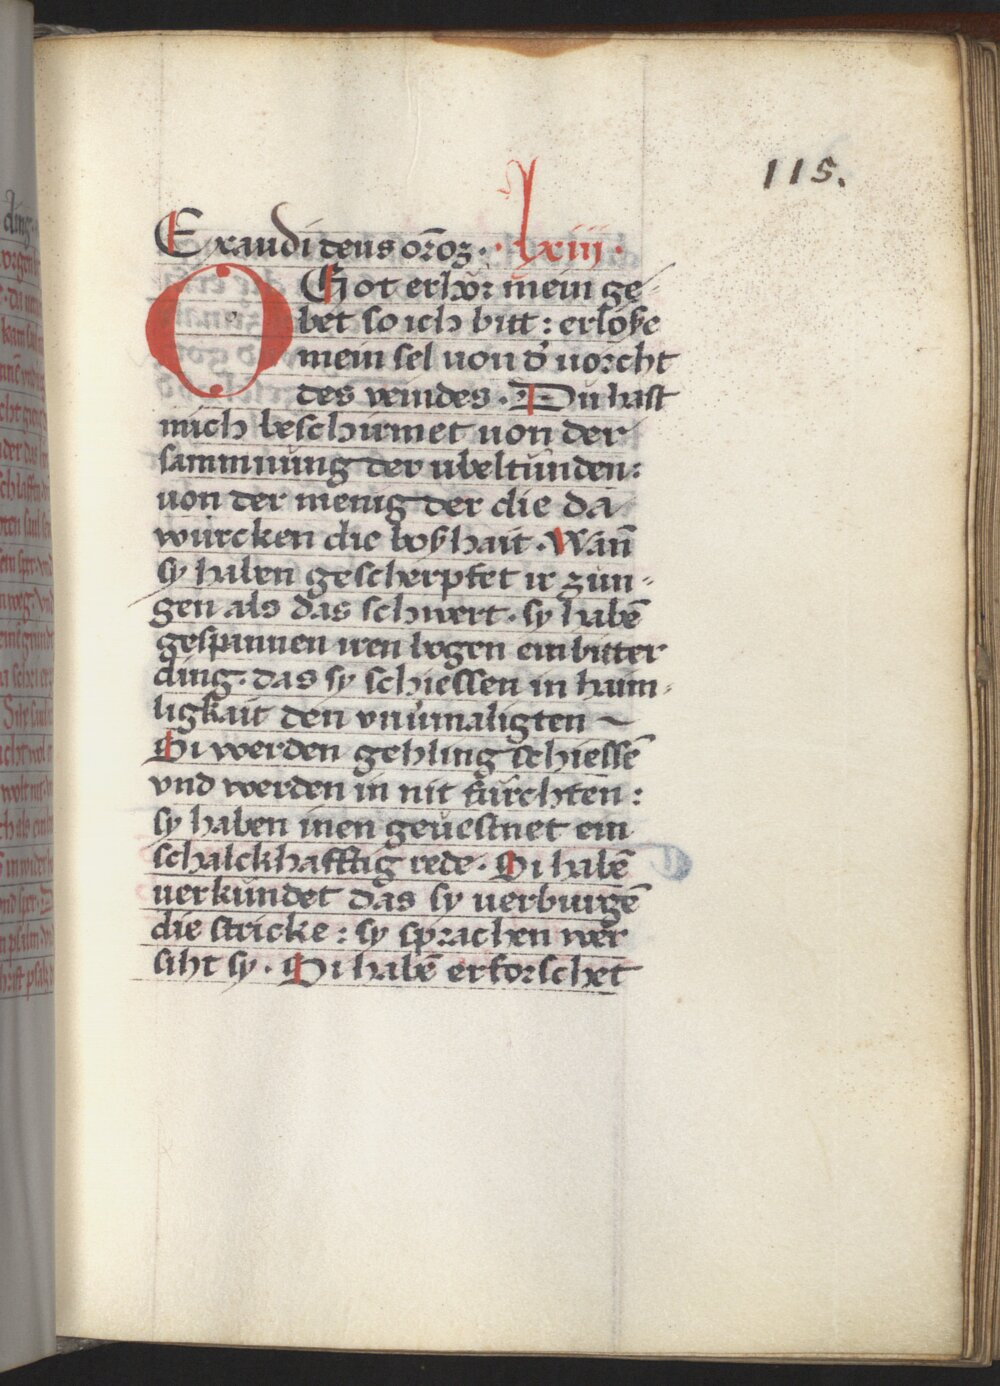 115.
Exaudi deus or̄oz · lxiii ·
O Got erhör mein ge
bet so ich bitt : erlöße
mein sel von d' vorcht
des veindes · Du hast
mich beschirmet von der
sammnūng der ubeltūnden :
von der menig der die da
wurcken die boßhait · Wañ
sy haben gescherpfet ir zun-
gen als das schwert · sy habē
gespannen iren bogen ein bitter
ding · das sy schiessen in haim-
ligkait den vnūmaligten ~
Si werden gehling schiessē
vnd werden in nit fürchten :
sy haben inen geuestnet ein
schalckhafftig rede · Si habē
verkundet das sy verburgē
die stricke : sy sprachen wer
siht sy · Si habē erforschet